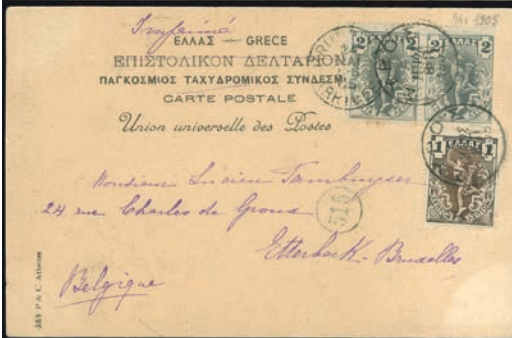 Imprimé
Mai 1905
ΕΛΛΑΣ — GRECE
ΕΠΙΣΤΟΛΙΚΟΝ ΔΕΛΤΑΡΙΟΝ
ΠΑΓΚΟΣΜΙΟΣ ΤΑΧΥΔΡΟΜΙΚΟΣ ΣΥΝΔΕΣΜ
CARTE POSTALE
Union universelle des Postes
2 ΕΛΛΑΣ 2
1 ΕΛΛΑΣ 1
Monsieur Lucien Tambuyser
24 rue Charles de Groux
515
Etterbeek-Bruxelles
Belgique
388 P & C Athènes